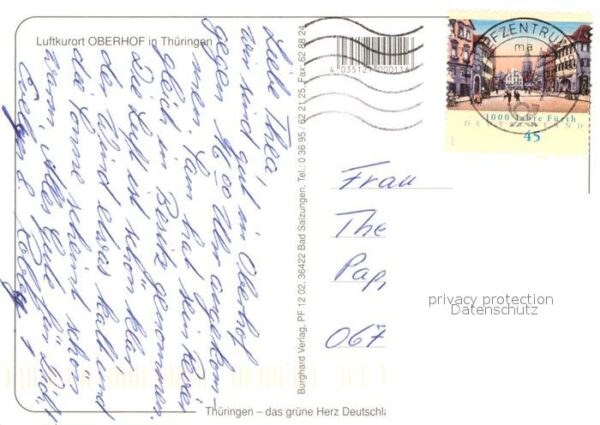 Luftkurort OBERHOF in Thüringen
Liebe Thea,
wir sind gut in Oberhof
gegen 16.00 Uhr angekom-
men. Sam hat sein Revier
gleich in Besitz genommen.
Die Luft ist schön klar,
der Wind etwas kalt und
die Sonne scheint schön
warm. Alles Gute für Dich!
Burghard Verlag, PF 12 02, 36422 Bad Salzungen, Tel.: 0 36 95 / 62 21 25, Fax 62 88 24
4 035121 000114
BRIEFZENTRUM
ma
1000 Jahre Fürth
DEUTSCHLAND
45
Frau
The
Pap
067
privacy protection
Datenschutz
Thüringen – das grüne Herz Deutschla